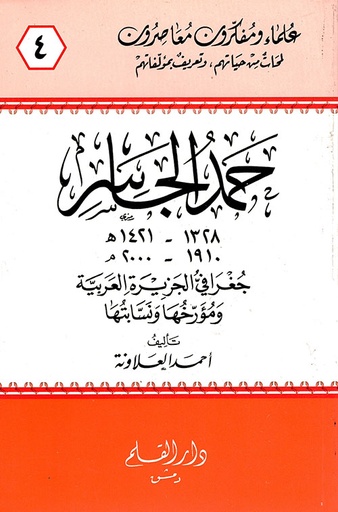 علماء ومفكرون معاصرون
لمحات من حياتهم، وتعريف بمؤلفاتهم
٤
حمد الجاسر
١٣٢٨ - ١٤٢١ هـ
١٩١٠ - ٢٠٠٠ م
جغرافيُّ الجزيرة العربية
ومؤرخها ونسابتها
تأليف
أحمد العلاونة
دار القلم
دمشق